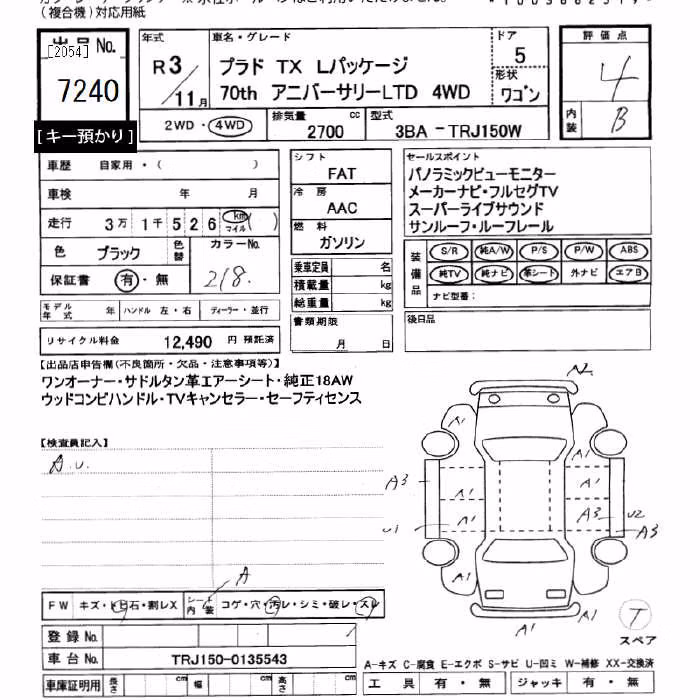 (複合機)対応用紙
出品No.
[2054]
7240
[キー預かり]
年式
R3/11月
車名・グレード
プラド TX Lパッケージ
70th アニバーサリーLTD 4WD
ドア
5
形状
ワゴン
評価点
4
内装
B
2WD・4WD
排気量
2700 cc
型式
3BA-TRJ150W
車歴 自家用・( )
車検 年 月
走行 3万1千526 km マイル ( )
色 ブラック
色替
カラーNo.
218
保証書 有・無
シフト
FAT
冷房
AAC
燃料
ガソリン
乗車定員 名
積載量 kg
総重量 kg
書類期限
月 日
セールスポイント
パノラミックビューモニター
メーカーナビ・フルセグTV
スーパーライブサウンド
サンルーフ・ルーフレール
装備品
S/R 純A/W P/S P/W ABS
純TV 純ナビ 革シート 外ナビ エアB
ナビ型番:
後日品
モデル年式 年 ハンドル 左・右 ディーラー・並行
リサイクル料金 12,490 円 預託済
【出品店申告欄(不良箇所・欠品・注意事項等)】
ワンオーナー・サドルタン革エアーシート・純正18AW
ウッドコンビハンドル・TVキャンセラー・セーフティセンス
【検査員記入】
A.U.
A2
A1
A1
A1
A3
A1
A1
U1
A1
A1
A3
U2
A3
A1
A1
A1
A1
T
スペア
A
FW キズ・トビ石・割レX
シート内装 コゲ・穴・汚レ・シミ・破レ・スレ
登録No.
車台No. TRJ150-0135543
車庫証明用 長さ cm 幅 cm 高さ cm
A-キズ C-腐食 E-エクボ S-サビ U-凹ミ W-補修 XX-交換済
工具 有・無 ジャッキ 有・無